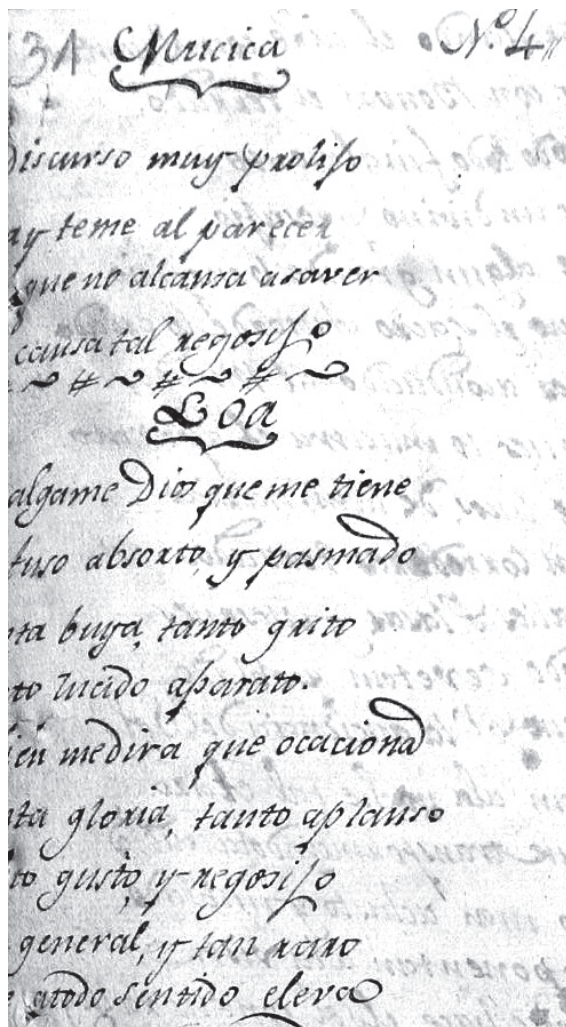 31 Mucica N.º 4
discurso muy proliso
ay teme al parecer
que no alcansa asaver
causa tal regosiso
Loa
algame Dios que me tiene
fuso absorto, y pasmado
nta buya, tanto grito
to lucido aparato.
ien medira que ocaciona
nta gloria, tanto aplauso
to gusto, y regosiso
general, y tan raro
atodo sentido eleva